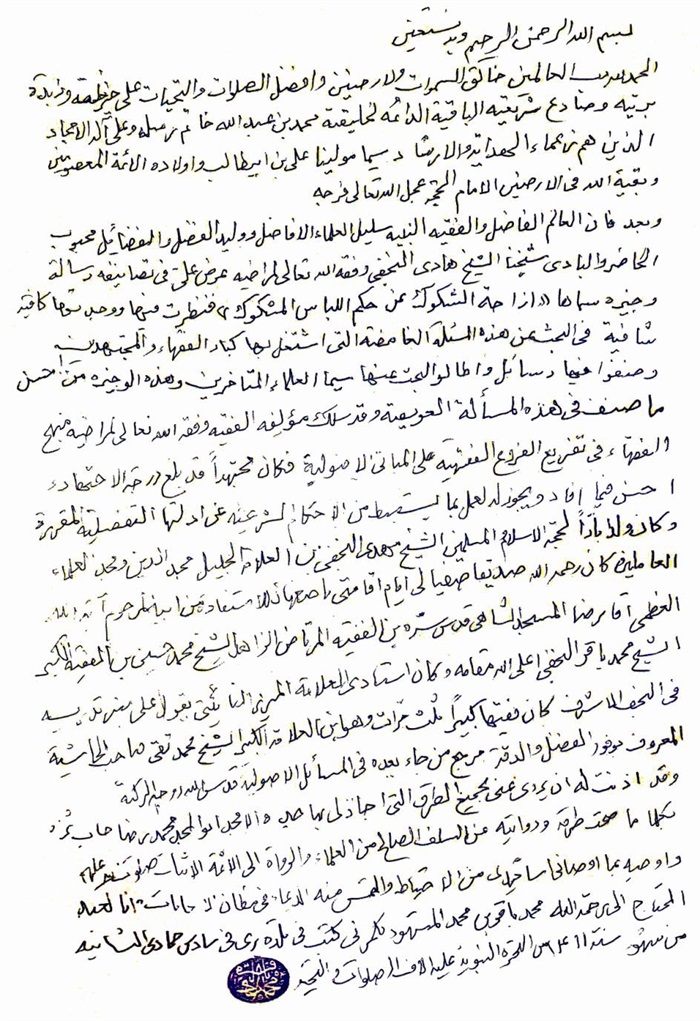 بسم الله الرحمن الرحيم وبه نستعين
الحمد لله رب العالمين خالق السموات والارضين وافضل الصلوات والتحيات على
بريته وصادع شريعته الباقية الدائمة لخليقته محمد بن عبد الله خاتم رسله وعلى آله الامجاد
الذين هم زعماء الهداية والارشاد سيما مولينا علي بن ابيطالب واولاده الائمة المعصومين
وبقية الله في الارضين الامام الحجة عجل الله تعالى فرجه
وبعد فان العالم الفاضل والفقيه النبيه سليل العلماء الافاضل ووليد الفضل والفضائل محبوب
الحاضر والبادى شيخنا الشيخ هادى النجفي وفقه الله تعالى لمراضيه عرض علىّ في تصانيفه رسالة
وجيزه سماها «ازاحة الشكوك عن حكم اللباس المشكوك» فنظرت فيها ووجدتها كافية
شافية في البحث عن هذه المسئلة الغامضة التى اشتغل بها كبار الفقهاء والمجتهدين
وصنفوا فيها رسائل واطالوا البحث عنها سيما العلماء المتاخرين وهذه الوجيزه من احسن
ما صنف في هذه المسألة العويصة وقد سلك مؤلفه الفقيه وفقه الله تعالى لمراضيه منهج
الفقهاء في تفريع الفروع الفقهية على المبانى الاصولية فكان مجتهداً قد بلغ درجة الاجتهاد
احسن فيما افاد ويجوز له العمل بما يستنبط من الاحكام الشرعية عن ادلتها التفصيلية المقررة
وكان والده لحجة الاسلام والمسلمين الشيخ مهدى النجفي بن العلامة الجليل مجد الدين ومجد العلماء
العاملين كان رحمه الله صديقا صفيا لى ايام اقامتى باصبهان للاستفاده من ابيه المرحوم آية الله
العظمى آقا رضا المسجد الشاهى قدس سره بن الفقيه المرتاض الزاهد الشيخ محمد حسين بن الفقيه الكبير
الشيخ محمد باقر النجفي اعلى الله مقامه وكان استادى العلامة الميرزا النائينى يقول على منبر تدريسه
في النجف الاشرف كان فقيها كبيراً ثلث مرّات وهو ابن العلامة الكبير الشيخ محمد تقى صاحب الحاشية
المعروف بوفور الفضل والدقة مرجع من جاء بعده في المسائل الاصولية قدس الله روحه الزكية
وقد اذنت له ان يروى عنى بجميع الطرق التى اجازلى بها جده الامجد ابو المجد محمد رضا طاب ثراه
بكلما صحت طرقه ورواياته عن السلف الصالح من العلماء والرواة الى الائمة الاثبات صلوات الله عليهم
واوصيه بما اوصانى اساتيدى من الاحتياط والتمس منه الدعاء في مظان الاجابات وانا العبد
المحتاج الى رحمة الله محمد باقر بن محمد المشهور بكمرئى كتبت في بلدة رى في سادس جمادى الثانية
من شهور سنة ١٤١١ من الهجرة النبوية عليه آلاف الصلوات والتحية